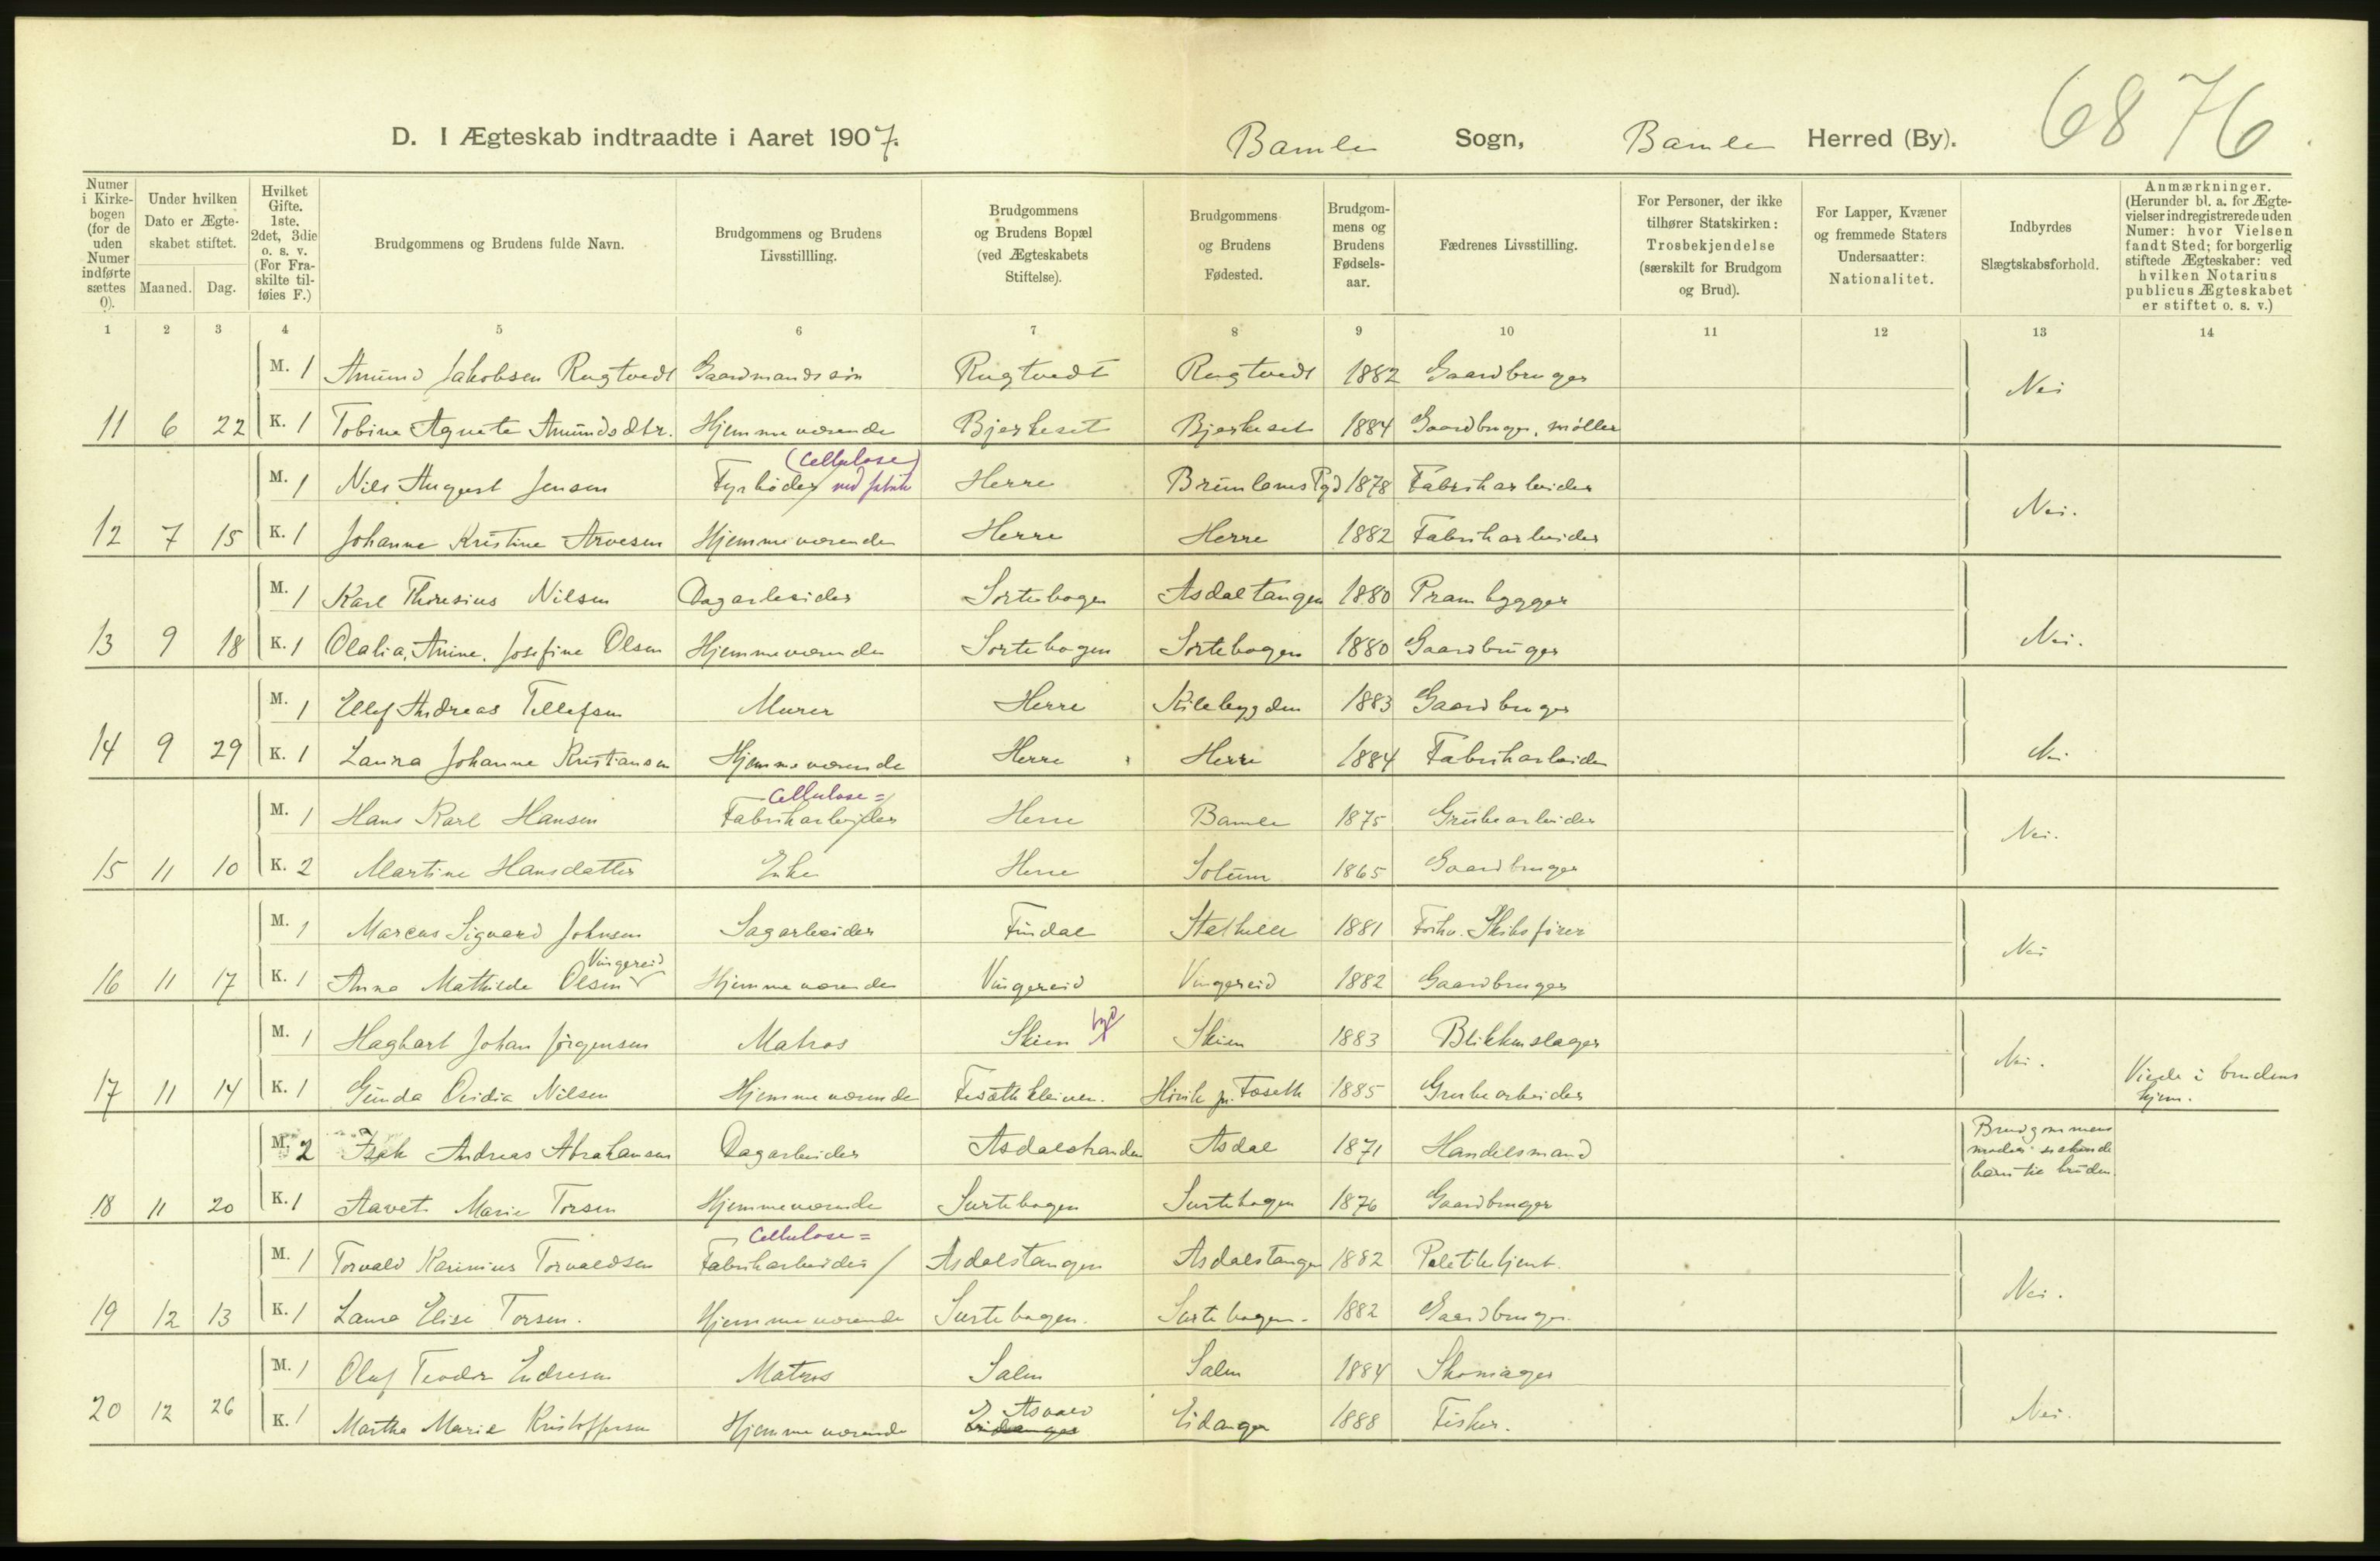 6876.
D. I Ægteskab indtraadte i Aaret 1907. Bamle Sogn, Bamle Herred (By).
Numer i Kirkebogen (for de uden Numer indførte sættes 0).
Under hvilken Dato er Ægteskabet stiftet.
Maaned. Dag.
Hvilket Gifte. 1ste, 2det, 3die o. s. v. (For Fraskilte tilføies F.)
Brudgommens og Brudens fulde Navn.
Brudgommens og Brudens Livsstillling.
Brudgommens og Brudens Bopæl (ved Ægteskabets Stiftelse).
Brudgommens og Brudens Fødested.
Brudgommens og Brudens Fødselsaar.
Fædrenes Livsstilling.
For Personer, der ikke tilhører Statskirken: Trosbekjendelse (særskilt for Brudgom og Brud).
For Lapper, Kvæner og fremmede Staters Undersaatter: Nationalitet.
Indbyrdes Slægtskabsforhold.
Anmærkninger. (Herunder bl. a. for Ægtevielser indregistrerede uden Numer: hvor Vielsen fandt Sted; for borgerlig stiftede Ægteskaber: ved hvilken Notarius publicus Ægteskabet er stiftet o. s. v.)
1 2 3 4 5 6 7 8 9 10 11 12 13 14
M. 1 Amund Jakobsen Rugtvedt Gaardmandssøn Rugtvedt Rugtvedt 1882 Gaardbruger Nei
11 6 22 K. 1 Tobine Agnete Amundsdtr. Hjemmeværende Bjerkeset Bjerkeset 1884 Gaardbruger, møller
(Cellulose)
M. 1 Nils August Jensen Fyrbøder ved fabrik Herre Brunlanes Pgd 1878 Fabrikarbeider Nei.
12 7 15 K. 1 Johanne Kristine Arvesen Hjemmeværende Herre Herre 1882 Fabrikarbeider
M. 1 Karl Thoresius Nilsen Dagarbeider Sortebogen Asdaltangen 1880 Prambygger Nei.
13 9 18 K. 1 Olalia, Anine, Josefine Olsen Hjemmeværende Sortebogen Sortebogen 1880 Gaardbruger
M. 1 Ellef Andreas Tellefsen Murer Herre Kilebygden 1883 Gaardbruger Nei
14 9 29 K. 1 Laura Johanne Kristiansen Hjemmeværende Herre Herre 1884 Fabrikarbeider
Cellulose=
M. 1 Hans Karl Hansen Fabrikarbeider Herre Bamle 1875 Grubearbeider Nei.
15 11 10 K. 2 Martine Hansdatter Enke Herre Solum 1865 Gaardbruger
M. 1 Marcus Sigvard Johnsen Sagarbeider Findal Stathelle 1881 Forhv. Skibsfører Nei
Vingereid
16 11 17 K. 1 Anna Mathilde Olsen Hjemmeværende Vingereid Vingereid 1882 Gaardbruger
M. 1 Hagbart Johan Jørgensen Matros Skien by Skien 1883 Blikkenslager Nei.
17 11 14 K. 1 Gunda Ovidia Nilsen Hjemmeværende Fosethkleiven. Høvik pr. Foseth 1885 Grubearbeider Viede i brudens hjem.
M. 2 Isak Andreas Abrahamsen Dagarbeider Asdalstranden Asdal 1871 Handelsmand Brudgommens moder søskendebarn til bruden
18 11 20 K. 1 Aavet Marie Torsen Hjemmeværende Surtebogen Surtebogen 1876 Gaardbruger
Cellulose=
M. 1 Torvald Karinius Torvaldsen Fabrikarbeider Asdalstangen Asdalstangen 1882 Politibetjent. Nei.
19 12 13 K. 1 Laura Elise Torsen. Hjemmeværende Surtebogen. Surtebogen. 1882 Gaardbruger.
M. 1 Oluf Teodor Endresen Matros Salen Salen 1884 Skomager Nei.
Asvald
20 12 26 K. 1 Martha Marie Kristoffersen Hjemmeværende Eidanger Eidanger 1888 Fisker.